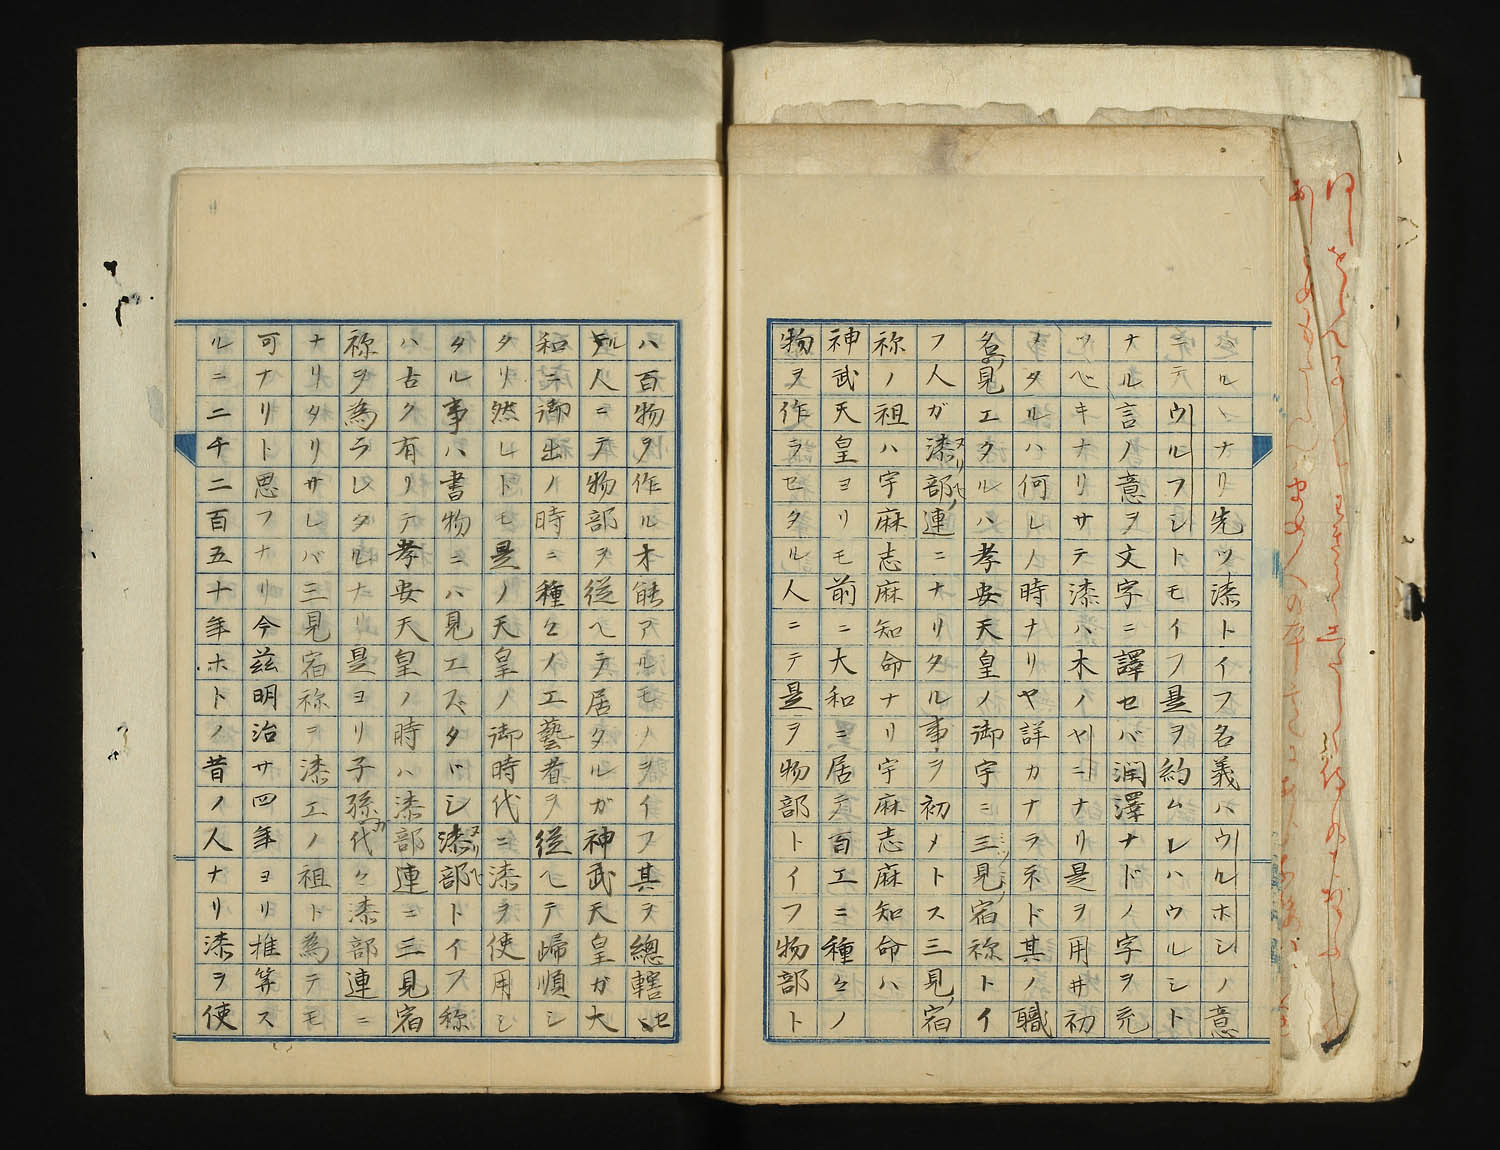 ウルシナリ先ツ漆トイフ名義ハウルホシノ意
ニテウルフシトモイフ是ヲ約ムレハウルシト
ナル言ノ意ヲ文字ニ譯セバ潤澤ナドノ字ヲ充
ツベキナリサテ漆ハ木ノヤニナリ是ヲ用井初
メタルハ何レノ時ナリヤ詳カナラネド其ノ職
名ノ見エタルハ孝安天皇ノ御宇ニ三見宿祢トイ
フ人ガ漆部連ニナリタル事ヲ初メトス三見ノ宿
祢ノ祖ハ宇麻志麻知命ナリ宇麻志麻知命ハ
神武天皇ヨリモ前ニ大和ニ居テ百工ニ種々ノ
物ヲ作ラセタル人ニテ是ヲ物部トイフ物部ト
ハ百物ヲ作ル才能アルモノヲイフ其ヲ總轄セ
ル人ニテ物部ヲ從ヘテ居タルガ神武天皇ガ大
和ニ御出ノ時ニ種々ノ工藝者ヲ從ヘテ歸順シ
タリ然レトモ是ノ天皇ノ御時代ニ漆ヲ使用シ
タル事ハ書物ニハ見エズタヾシ漆部トイフ称
ハ古ク有リテ孝安天皇ノ時ハ漆部連ニ三見宿
祢ヲ為ラレタルナリ是ヨリ子孫ガ代々漆部連ニ
ナリタリサレバ三見宿祢ヲ漆工ノ祖ト為テモ
可ナリト思フナリ今茲明治廿四年ヨリ推算ス
ルニ二千二百五十年ホトノ昔ノ人ナリ漆ヲ使